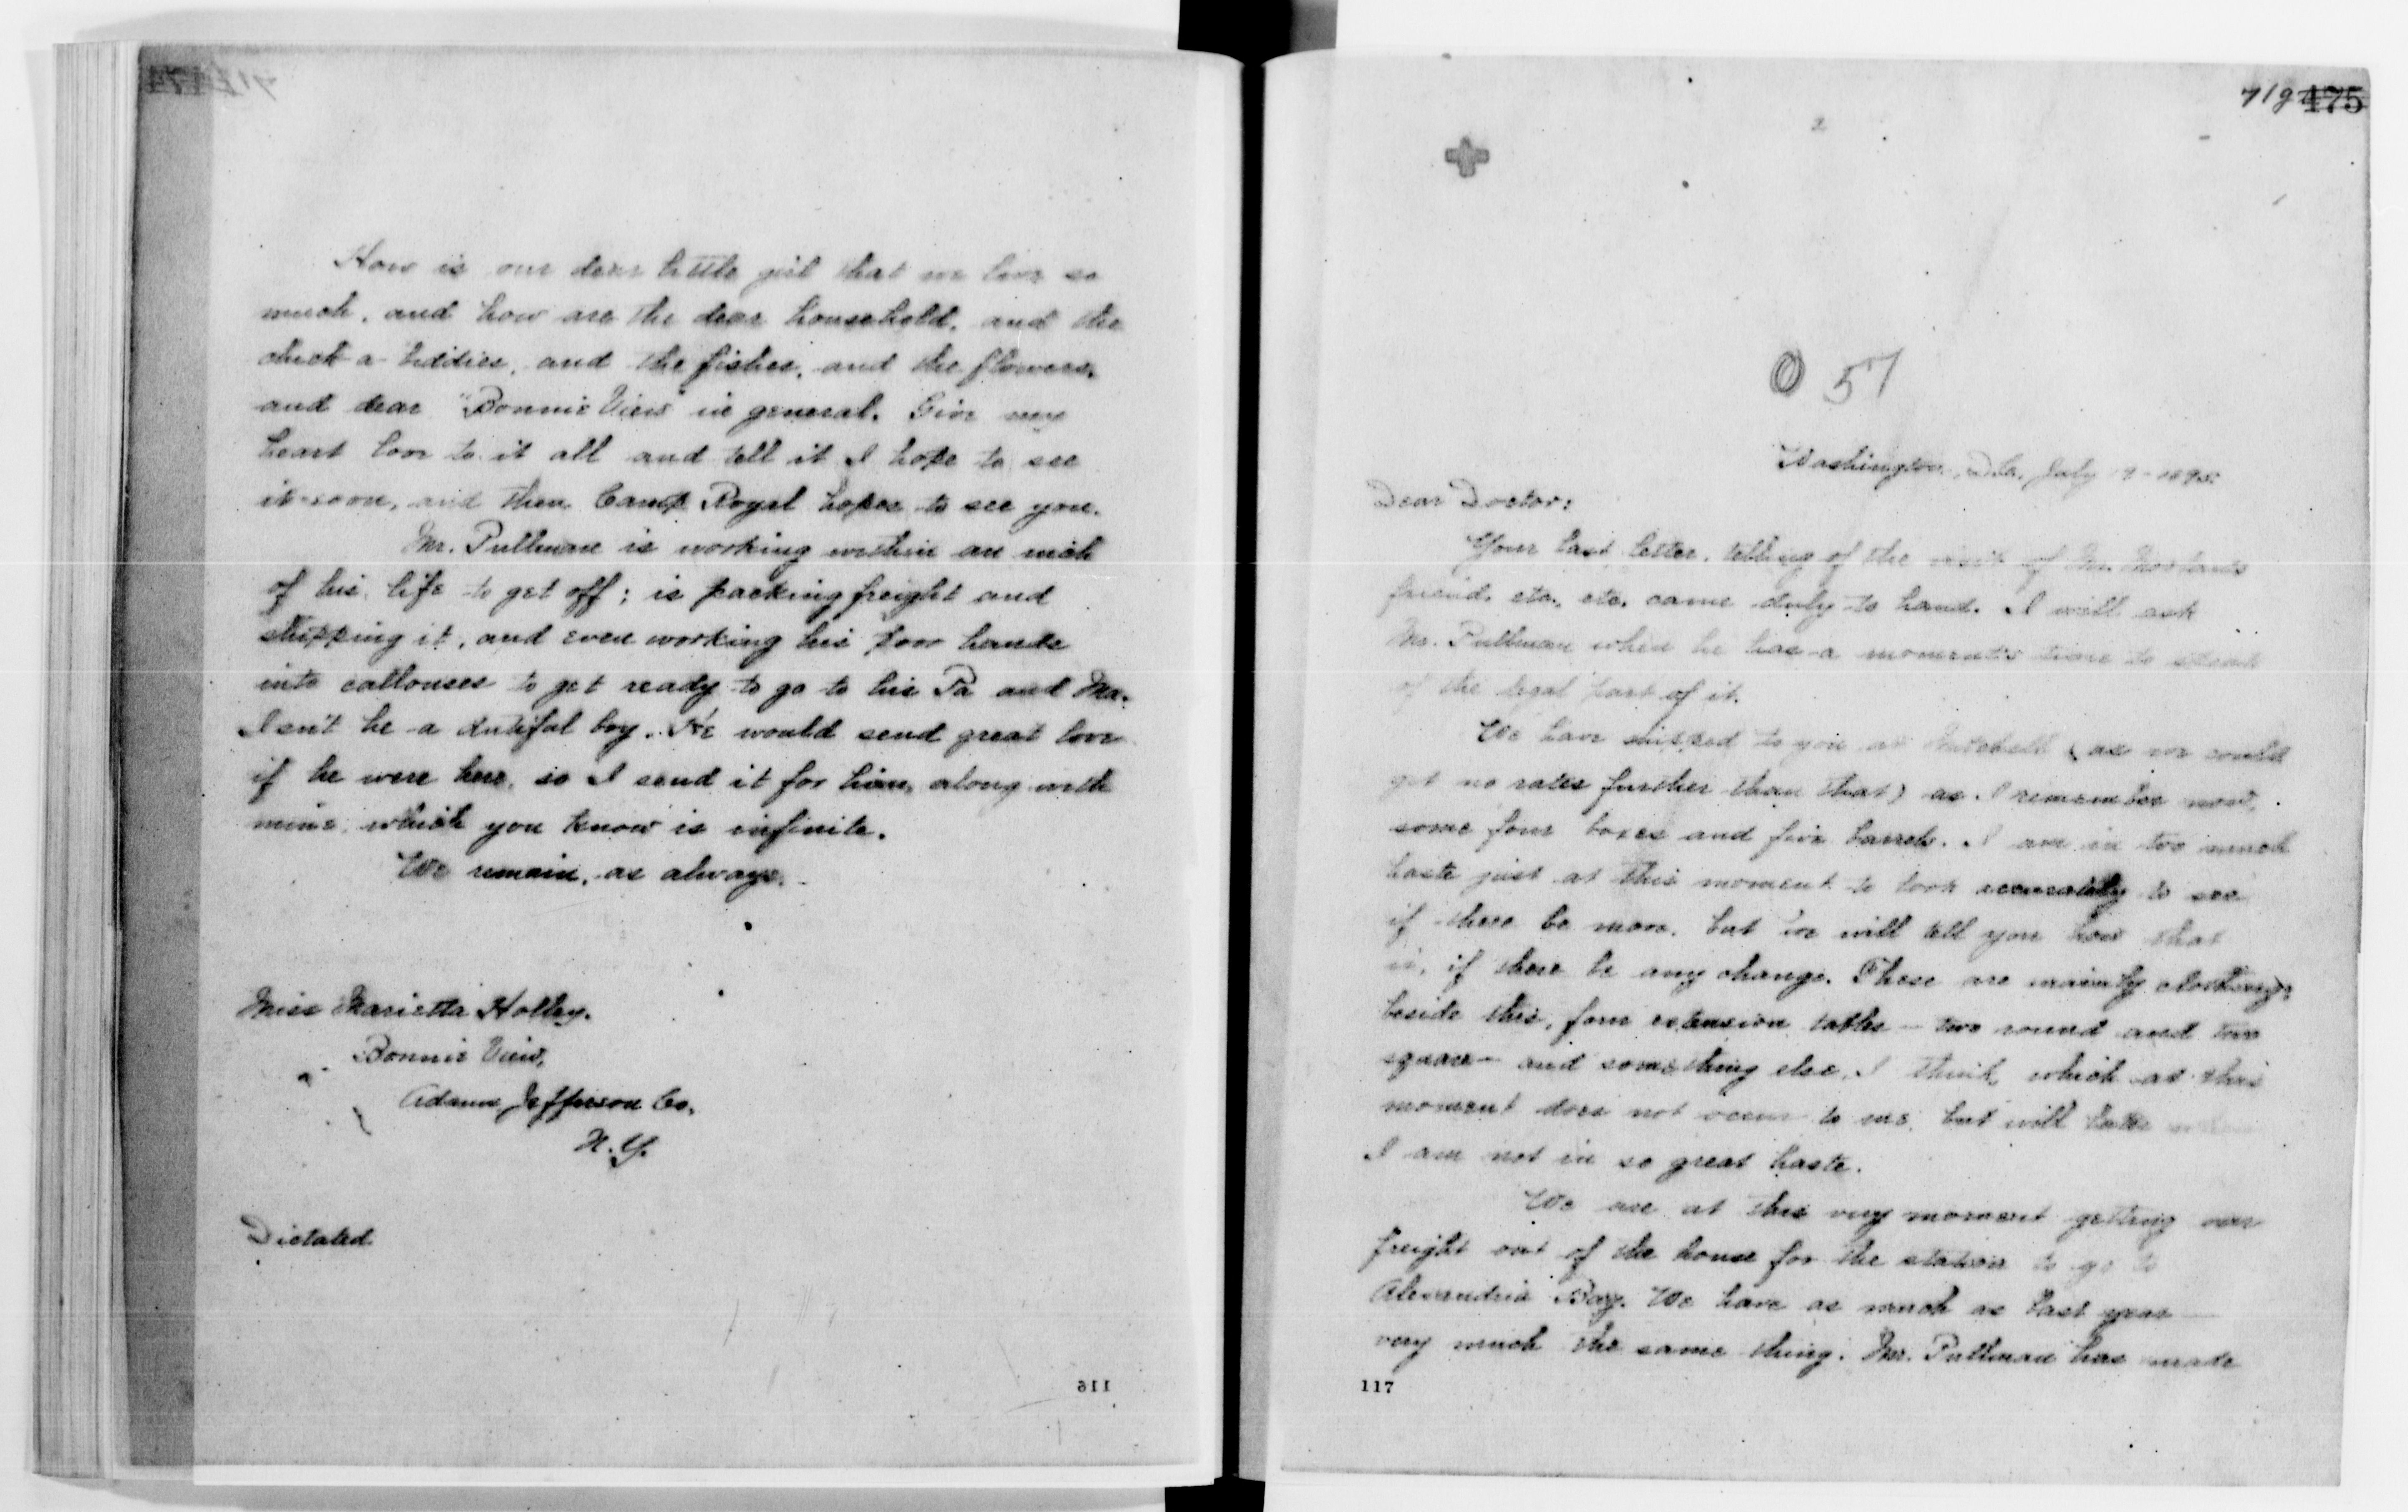 How is our dear little girl that we love so
much, and how are the dear household, and the
chick-a-biddies, and the fishes, and the flowers,
and dear "Bonnie View" in general. Give my
heart love to it all and tell it I hope to see
it soon, and then Camp Royal hopes to see you.
Mr. Pullman is working within an inch
of his life to get off; is packing freight and
shipping it, and even working his poor hands
into callouses to get ready to go to his Pa and Ma.
Isn't he a dutiful boy. He would send great love
if he were here, so I send it for him, along with
mine, which you know is infinite.
We remain, as always,
Miss Marietta Holley.
Bonnie View,
Adams Jefferson Co.
N.Y.
Dictated
116
475
O 57
Washington, July 1895
Dear Doctor:
Your last letter, telling of the visit of Mr.
friend, etc., etc. came duly to hand. I will ask
Mr. Pullman when he has a moment's time to speak
of the legal part of it.
We have shipped to you at Mitchell (as we could
get no rates further than that) as I remember now,
some four boxes and five barrels. I am in too much
haste just at this moment to look accurately to see
if there be more, but we will tell you how that
is, if there be any change. These are mainly clothing,
beside this, four extension tables - two round and two
square - and something else, I think, which at this
moment does not occur to me, but will later when
I am not in so great haste.
We are at this very moment getting our
freight out of the house for the station to go to
Alexandria Bay. We have as much as last year
very much the same thing. Mr. Pullman has made
117